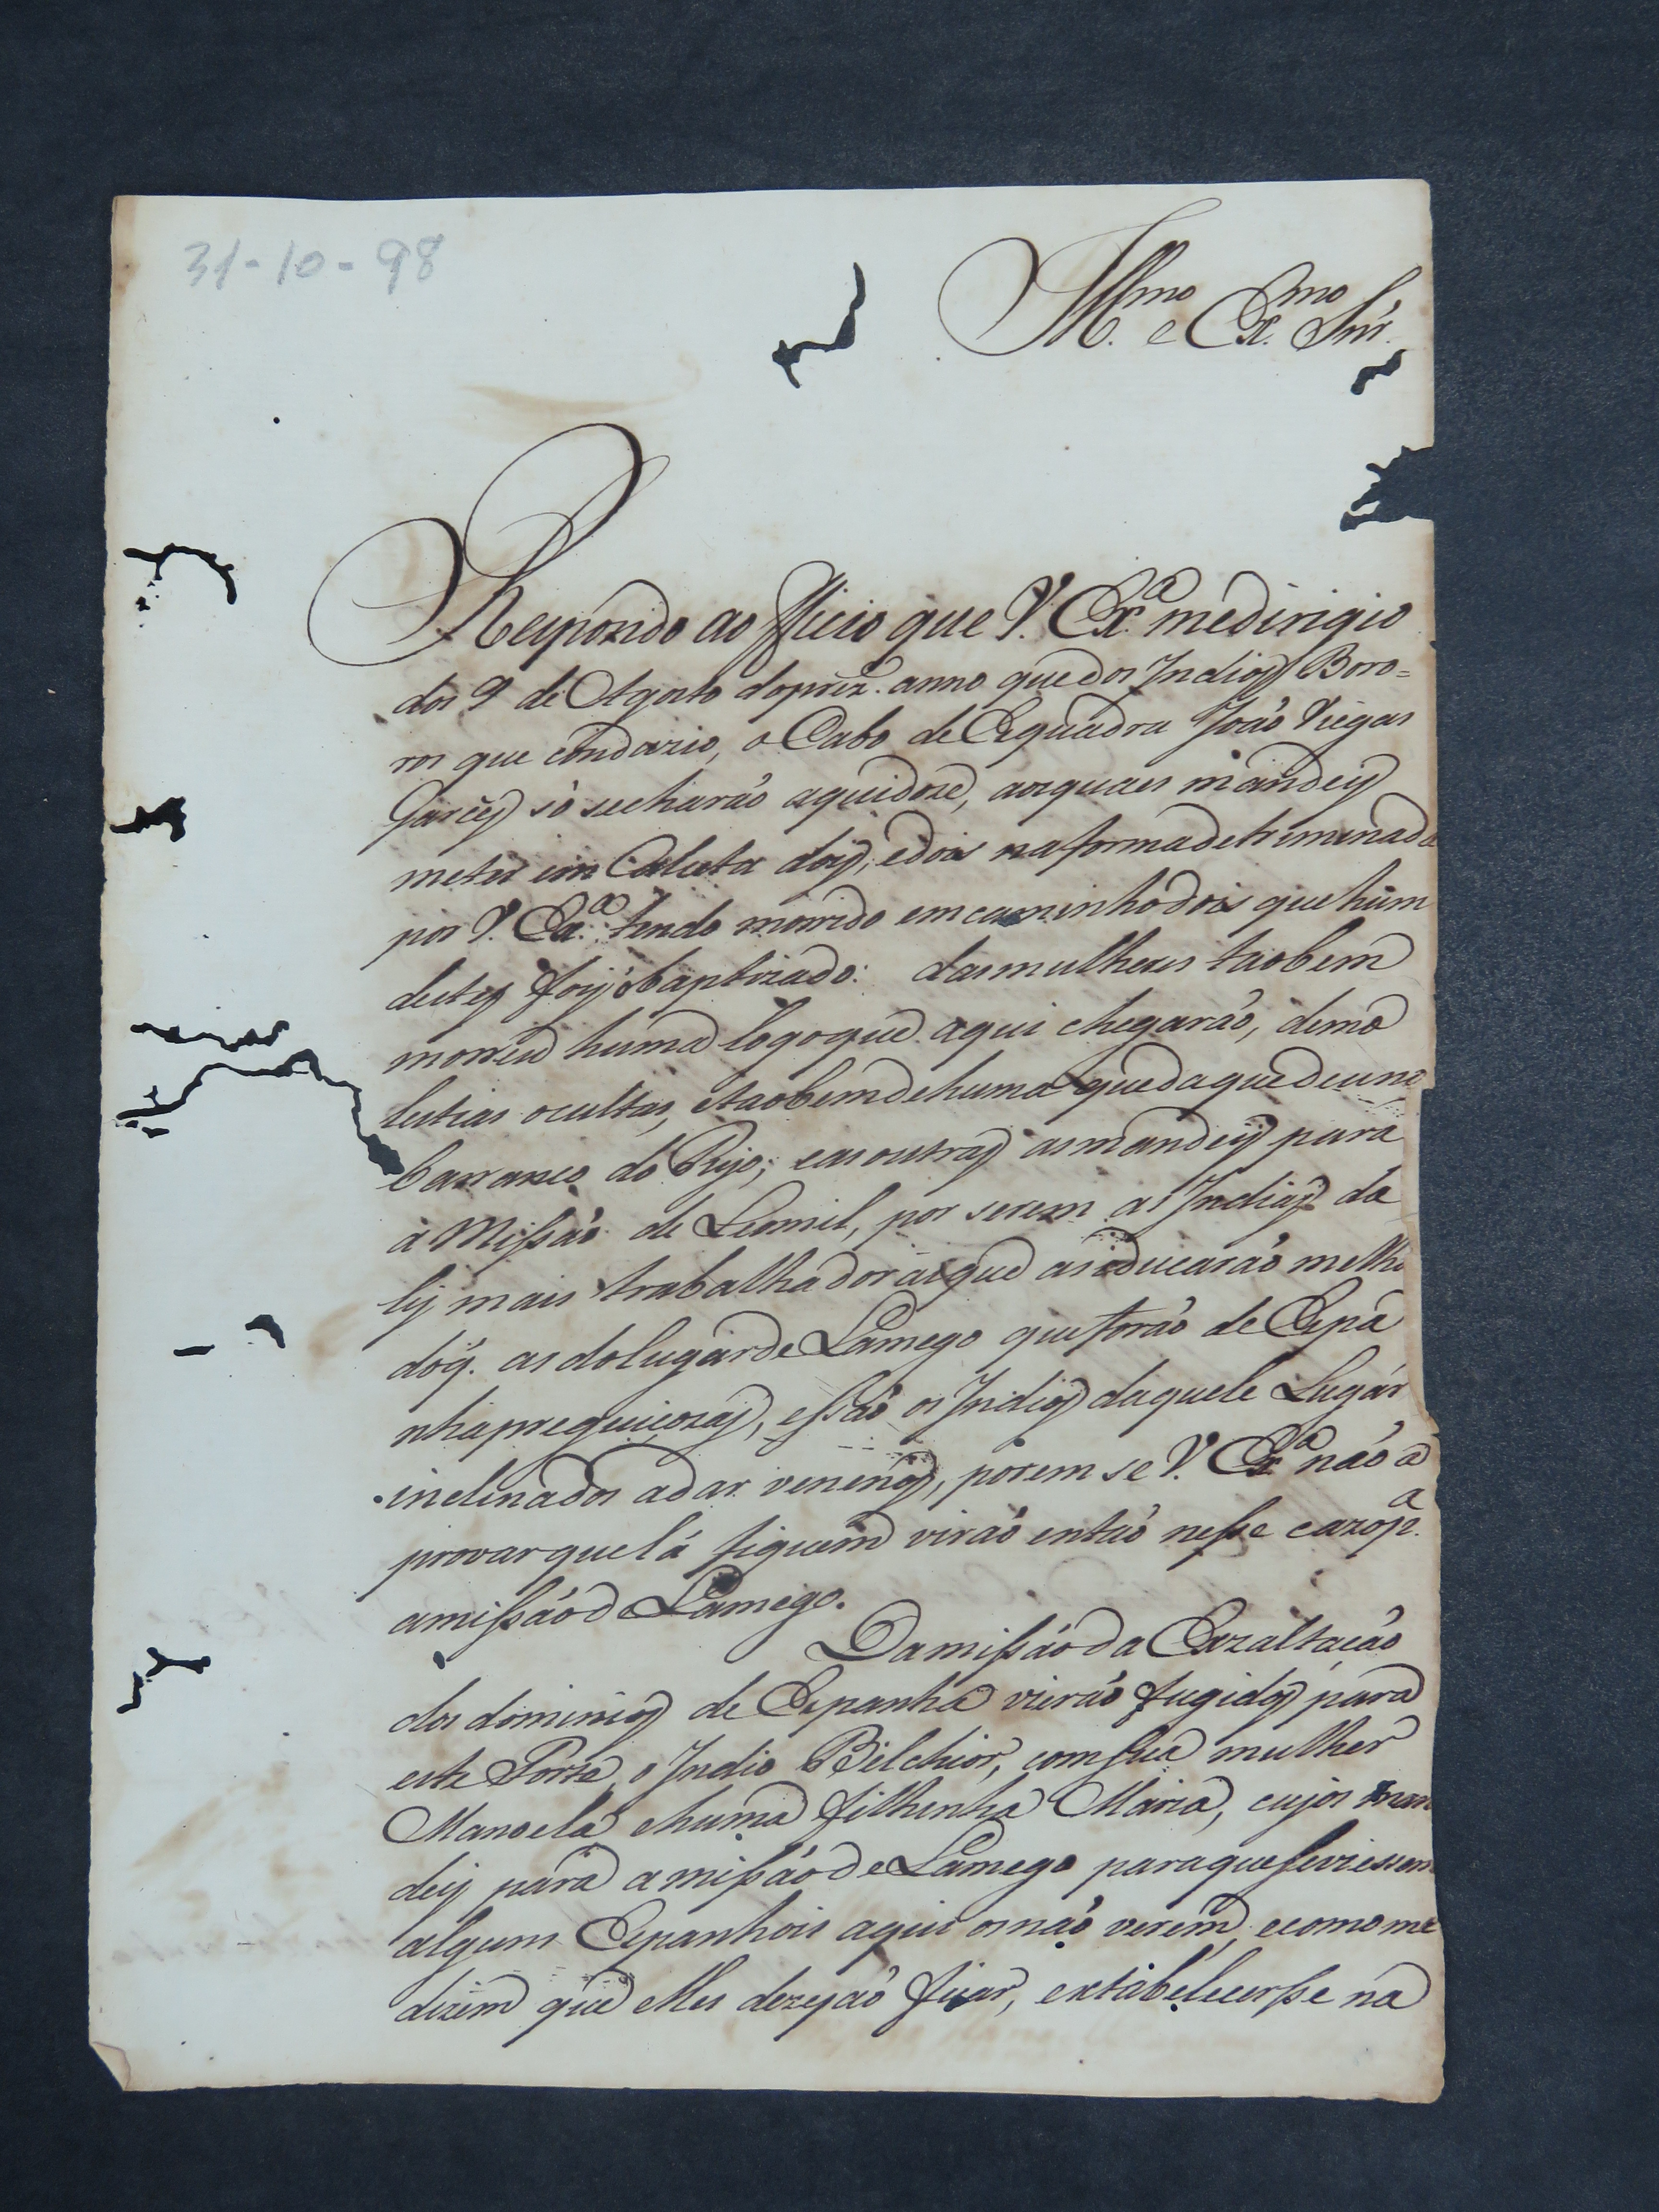 31-10-98
Ill.mo e Ex.mo Snr.
Respondo ao Officio que V. Ex.a me dirigio
dos 9 de Agosto do prez.e anno que dos Indios Boro=
ros que condazio, o Cabo de Esquadra João Viegas
Garcês só se charão aqui doze, aos quaes mandey
meter em Calceta dois, e dois na forma detriminada
por V. Ex.a tendo morrido em caminho dois que hum
destes foy baptizado: das mulheres taobem
morreu huma logo que aqui chegarão, de mo
lestias ocultas, e taobem de huma queda que deu no
barranco do Rijo; e as outras as mandey para
a Missão de Leomil, por serem as Indias da
ly mais trabalhadoras que as educarão melho
do q. as do lugar de Lamego que forão de Espa
nha preguiçozas, e são os Indios daquele Lugar
inclinados a dar venenos, porem se V. Ex.a não a
provar que lá fiquem virão então nesse cazo p.a
a missão de Lamego.
Da missão da Exzaltação
dos dominios de Espanha vierão fugidos para
este Forte, o Indio Bilchior, com sua mulher
Manoela e huma filhinha Maria, cujos man
dey para a missão de Lamego para que se viessem
alguns Espanhois aqui os não verem, e como me
dizem que elles dezejão ficar, e extabelecersse na